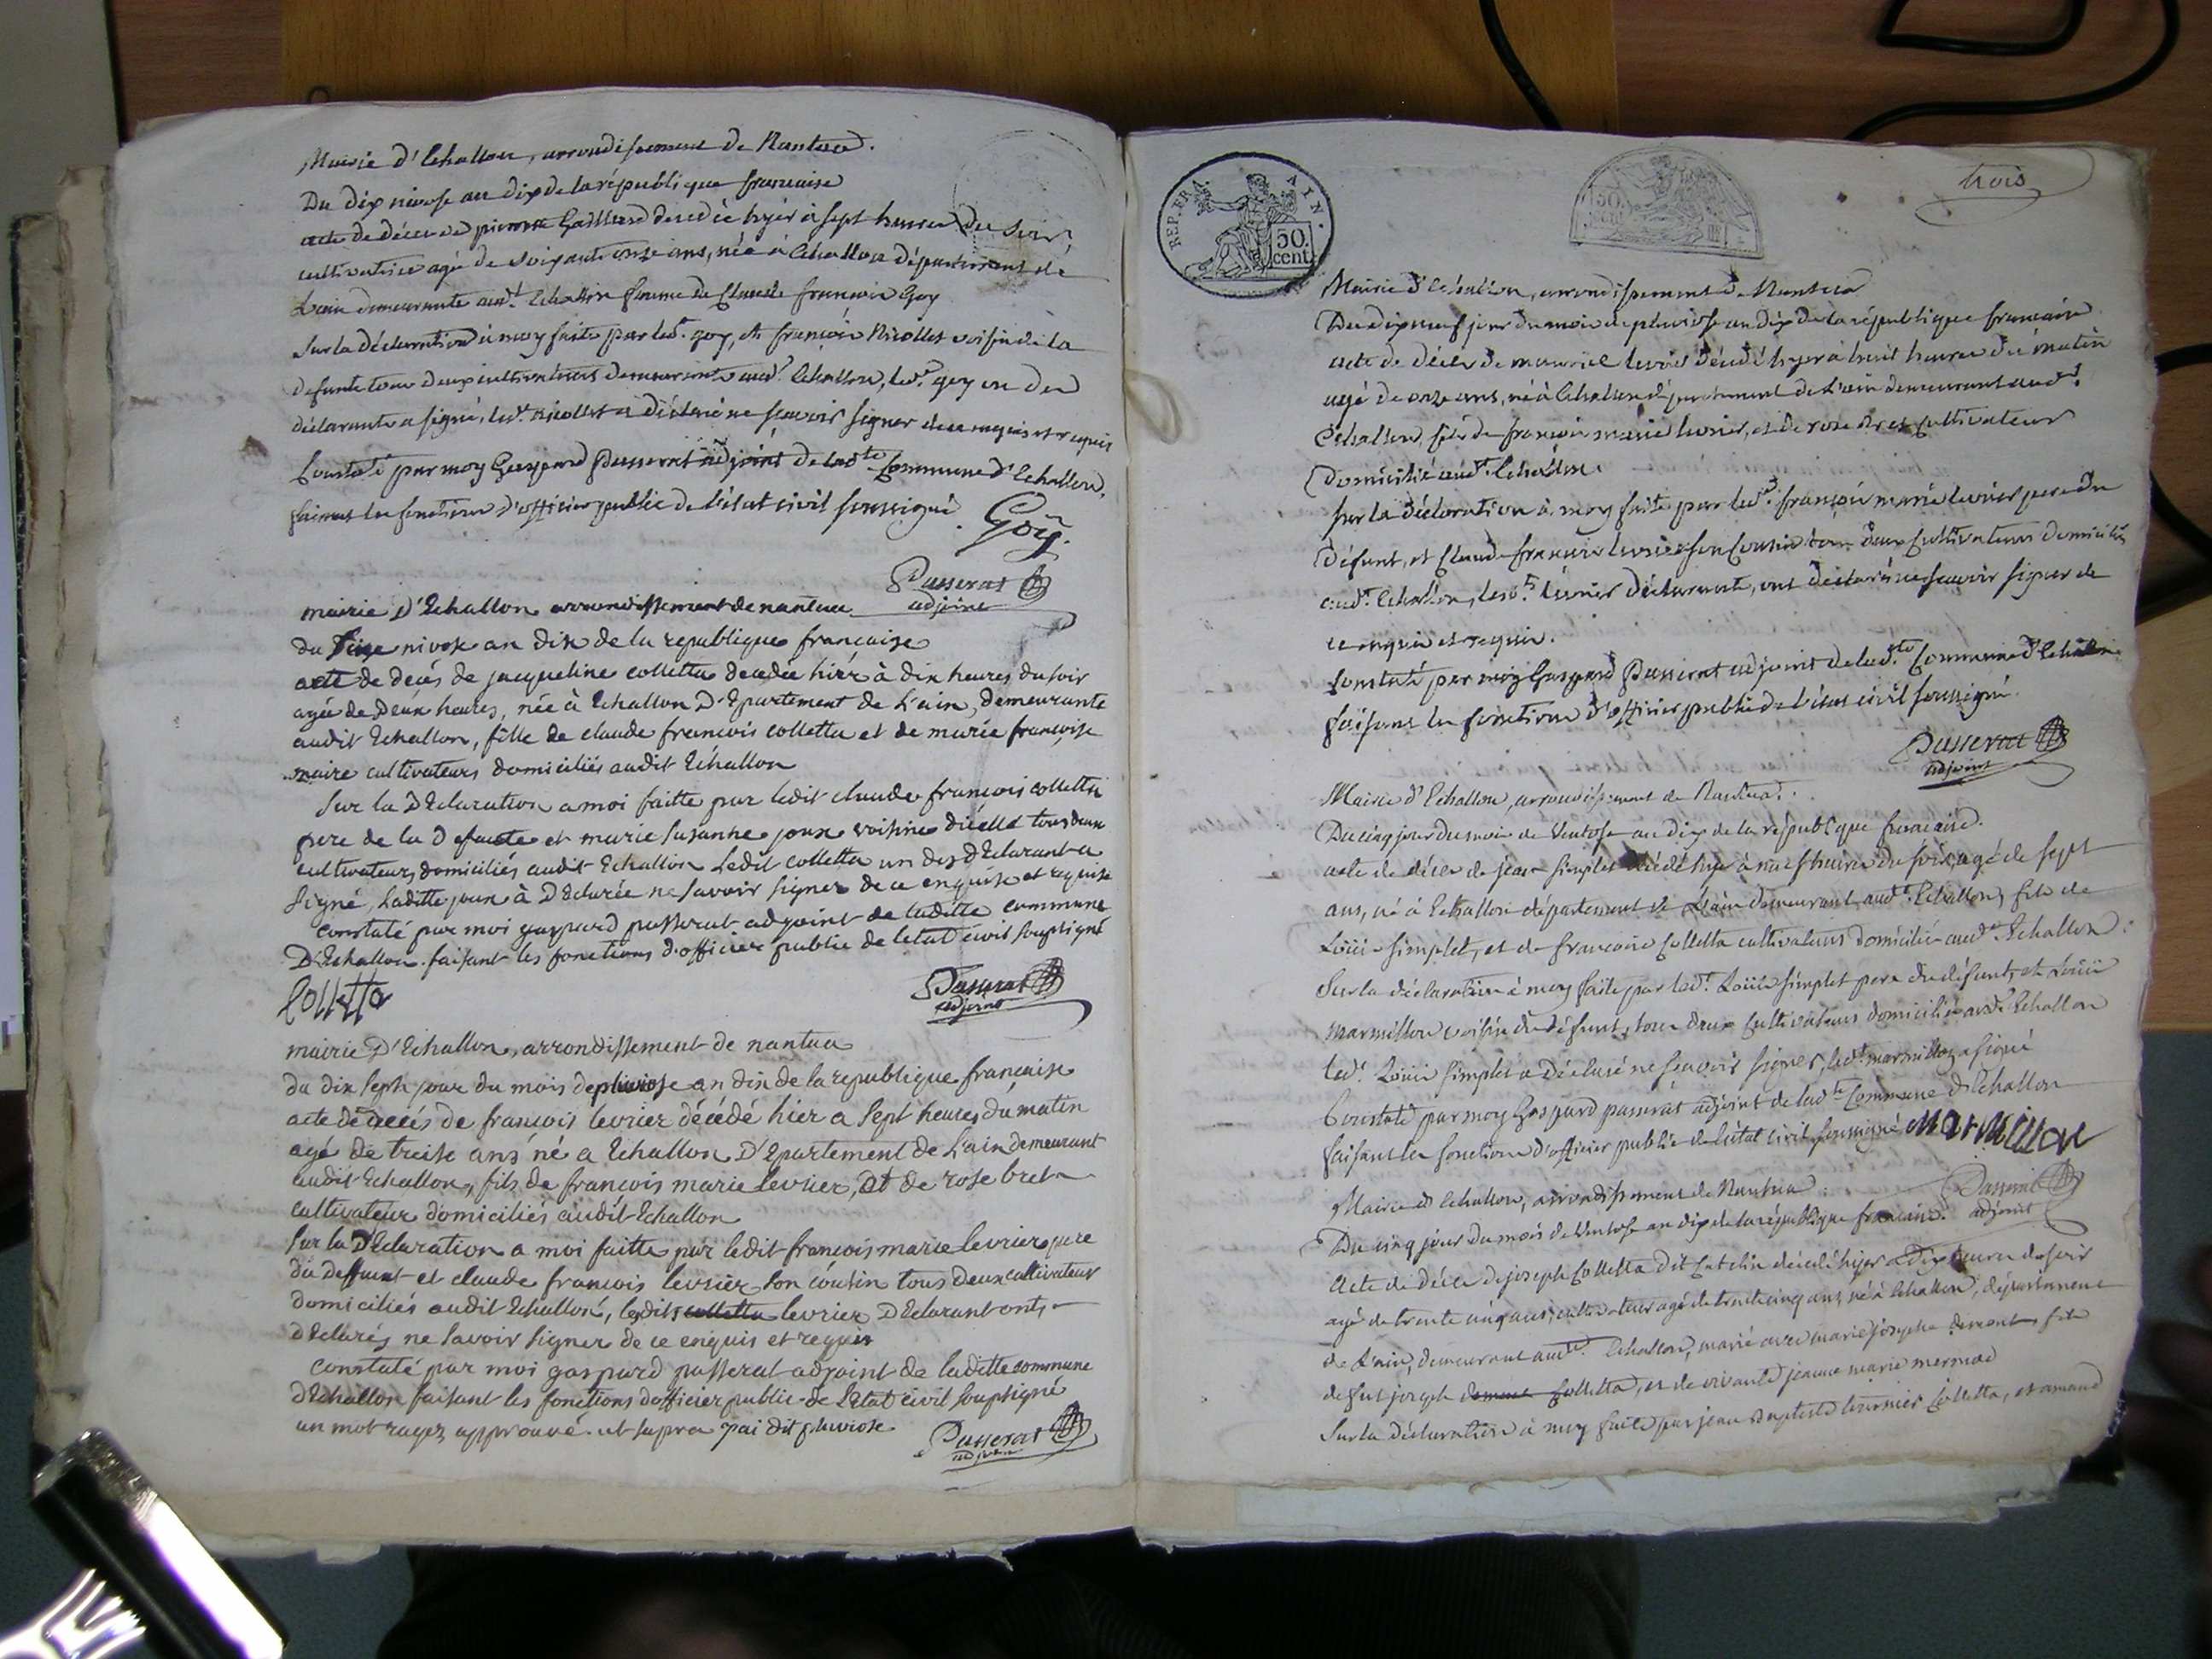 Mairie d'Echallon, arrondissement de Nantua.
Du dix nivose an dix de la république francaise
acte de décès de pierrette Gaillard decedée hyer à sept heures du soir,
cultivatrice agé de soixante onze ans, née à Echallon département de
L'ain demeurante aud.t Echallon femme de Claude francois Goy
Sur la déclaration à moy faite par led.t goy, et françois Nicollet voisin de la
defunte tous deux cultivateurs demeurants aud.t Echallon, led.t goy un des
déclarants a signé, led.t nicollet a déclaré ne scavoir signer de ce enquis et requis
Constaté par moy Gaspard Passerat adjoint de lad.te Commune d'Echallon,
faisant les fonctions d'officier public de l'état civil soussigné.
Goy.
Passerat
adjoint
mairie D'Echallon arrondissement de nantua
du seize nivose an dix de la republique française
acte de décés de jacqueline colletta decedée hièr à dix heures du soir
agée de Deux heures, née à Echallon D'Epartement de L'ain, demeurante
audit Echallon, fille de claude francois colletta et de marie françoise
maire cultivateurs domiciliés audit Echallon
Sur la DEclaration a moi faitte par ledit claude francois colletta
pere de la Defunte et marie susanne joux voisine d'icelle tous deux
cultivateurs domiciliés audit Echallon Ledit colletta un des DEclarant a
signé, Laditte joux à DEclarée ne savoir signer de ce enquise et requise
constaté par moi gaspard passerat adjoint de laditte commune
D'Echallon faisant les fonctions d'officier public de l'etat civil soupsigné
Colletta
Passerat
adjoint
mairie D'Echallon, arrondissement de nantua
du dix sept jour du mois de pluviose an dix de la republique française
acte de décés de francois levrier décédé hier a sept heures du matin
agé de treise ans né a Echallon D'Epartement de L'ain demeurant
audit Echallon, fils de francois marie levrier, et de rose bret
cultivateur domiciliés audit Echallon
Sur la DEclaration a moi faitte par ledit francois marie levrier pere
du deffunt et claude francois levrier son cousin tous deux cultivateur
domiciliés audit Echallon, lesdits colletta levrier DEclarant onts
dEclarés ne savoir signer de ce enquis et requis
constaté par moi gaspard passerat adjoint de laditte commune
d'Echallon faisant les fonctions d'officier public de l'Etat civil soupsigné
un mot rayez approuvé. ut supra j'ai dit pluviose
Passerat
adjoint
REP. FRA. AIN.
50. cent.
50.
trois
Mairie d'Echallon, arrondissement de Nantua
Du dix neuf jour du mois de pluviose an dix de la république francaise
acte de décès de levrier décédé hyer à huit heures du matin
agé de onze ans, né à Echallon département de L'ain demeurant aud.t
Echallon, fils de françois marie levrier, et de rose Bret Cultivateurs
domicilié aud.t Echallon.
Sur la déclaration à moy faite par led.t françois marie levrier pere du
défunt, et Claude francois levrier son Cousin tous deux Cultivateurs domiciliés
aud.t Echallon, lesd.ts levrier déclarants, ont déclaré ne scavoir signer de
ce enquis et requis.
Constaté par moy Gaspard Passerat adjoint de lad.te Commune d'Echallon
faisant les fonctions d'officier public de l'état civil soussigné.
Passerat
adjoint
Mairie d'Echallon, arrondissement de Nantua.
Du cinq jour du mois de Ventose an dix de la république francaise.
acte de décès de jean simplet décédé hyer à neuf heures du soir, agé de sept
ans, né à Echallon département de L'ain demeurant aud.t Echallon, fils de
Loüis simplet, et de francoise Colletta cultivateurs domicilié aud.t Echallon.
Sur la déclaration à moy faite par led.t Loüis simplet pere du défunt, et Loüis
Marmillon voisin du défunt, tous deux Cultivateurs domicilié aud.t Echallon
led.t Loüis simplet a déclaré ne scavoir signer, led.t marmillon a signé
Constaté par moy Gaspard passerat adjoint de lad.te Commune d'Echallon
faisant les fonctions d'officier public de l'état civil soussigné Marmillon
Passerat
adjoint
Mairie d'Echallon, arrondissement de Nantua.
Du cinq jour du mois de Ventose an dix de la république francaise.
Acte de décès de joseph Colletta dit Catelin décédé hyer a dix heures du soir
agé de trente cinq ans, cultivateur agé de trente cinq ans, né à Echallon, département
de L'ain, demeurant aud.t Echallon, marié avec marie josephe fils
de fut joseph Colletta, et de vivante jeanne marie mermod
Sur la déclaration à moy faite par jean Baptiste Colletta, et amand